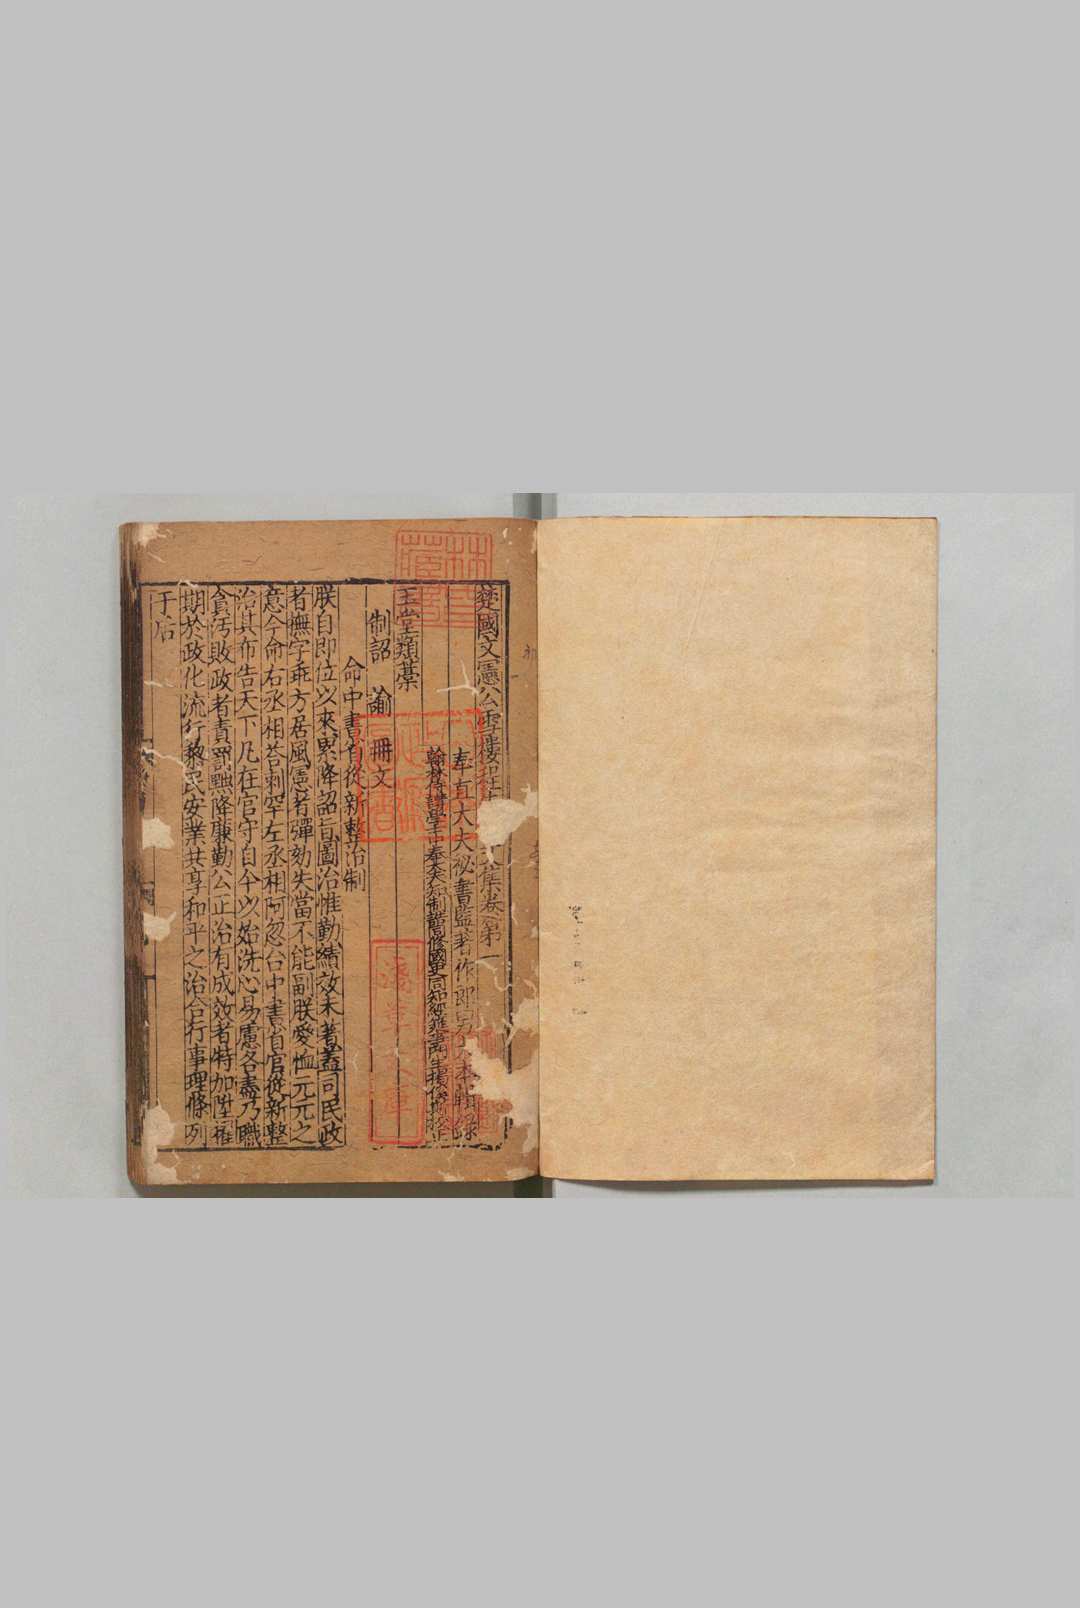 楚國文憲公雪樓程先生文集卷第一
奉直大夫祕書監著作郎男大本輯錄
翰林侍講學士奉大夫知制誥同修國史同知經筵事門生揭傒斯校正
玉堂類藁
制詔 諭 冊文
命中書省從新整治制
朕自即位以來累降詔旨圖治惟勤績效未著蓋司民政
者撫字乖方居風憲者彈劾失當不能副朕愛恤元元之
意今命右丞相荅剌罕左丞相阿忽台中書省官從新整
治其布告天下凡在官守自今以始洗心易慮各盡乃職
貪汚敗政者責罰黜降廉勤公正治有成效者特加陞擢
期於政化流行黎民安業共享和平之治合行事理條列
于后